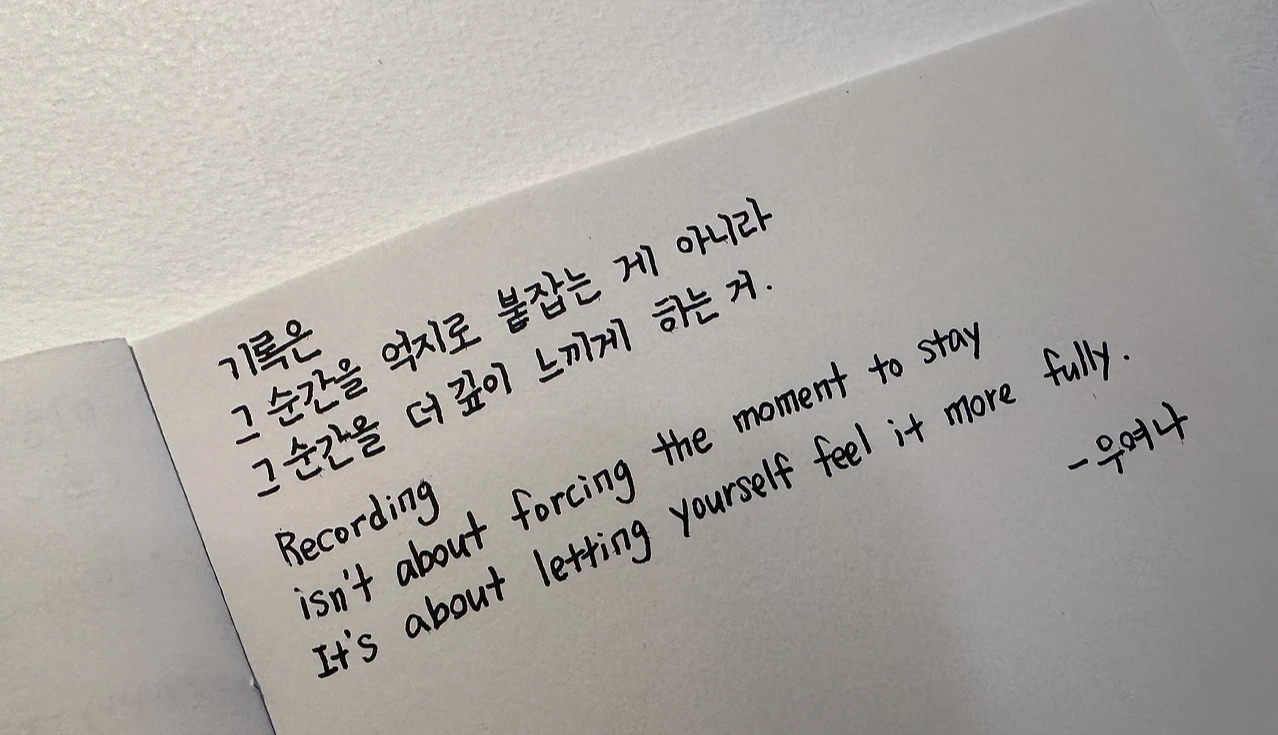 기록은
그 순간을 억지로 붙잡는 게 아니라
그 순간을 더 깊이 느끼게 하는 거.
Recording
isn't about forcing the moment to stay
It's about letting yourself feel it more fully.
- 우여나